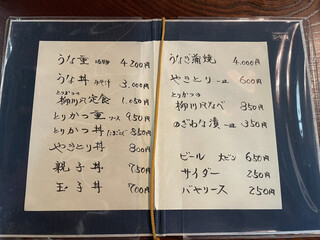 うな重 4.200円
うな丼 3.000円
とりかつの
柳川风定食 1.050円
とりかつ重 ソース 950円
とりかつ丼 たまごとじ 850円
やきとり丼 800円
親子丼 750円
玉子丼 700円
うなぎ蒲焼 4.000円
やきとり 一皿 600円
とりかつの
柳川风なべ 850円
のざわな漬 一皿 350円
ビール 大ビン 650円
サイダー 250円
バヤリース 250円